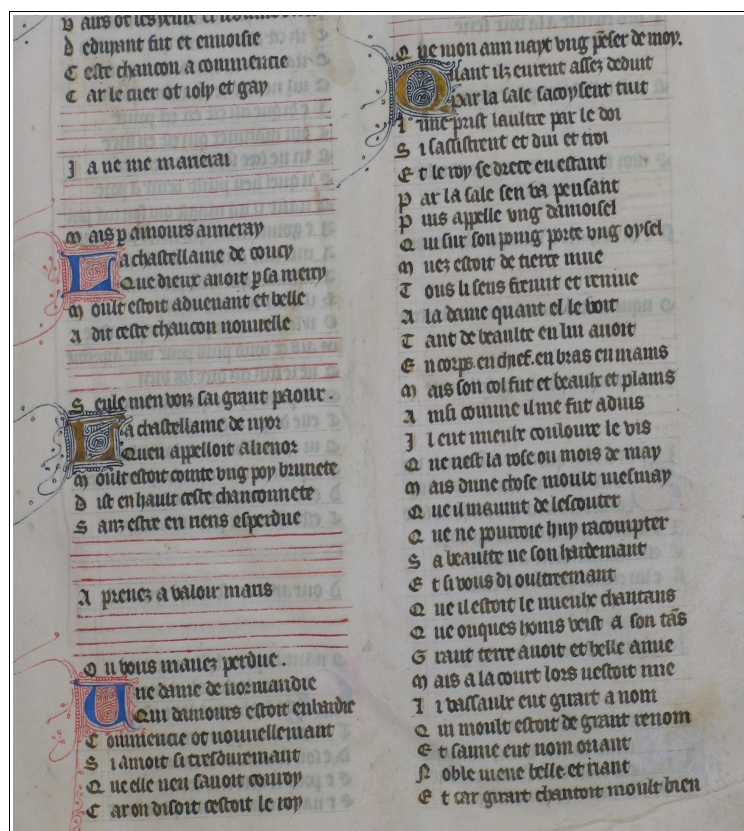 V airs ot les yeulx et le
D eduisant fut et envoisie
C este chancon a commencie
C ar le cuer ot ioly et gay
J a ne me marierai
M ais p amours ameray
L a chastellaine de coucy
Que dieux avoit p sa mercy
M oult estoit advenant et belle
A dit ceste chancon nouvelle
S eule men vois sai grant paour.
L a chastellaine de nyor
Quen appelloit alienor
M oult estoit cointe ung poy brunete
D ist en hault ceste chanconnete
S anz estre en riens esperdue
A prenez a valoir maris
Q ui vous mauez perdue.
U ne dame de normandie
Qui damours estoit enhardie
C ommencie ot nouvellement
S i amoit si tresdurement
Q ue elle nen savoit conroy
C ar on disoit cestoit le roy
Q ue mon ami nayt ung pēser de moy.
Q uant ilz eurent assez deduit
Par la sale sacoysent tuit
L une prist laultre par le doi
S i sassistrent et dui et troi
E t le roy se drece en estant
P ar la sale sen va pensant
P uis appelle ung damoisel
Q ui sur son poing porte ung oysel
M uez estoit de tierce mue
T ous li sens fremit et remue
A la dame quant el le voit
T ant de beaulte en lui avoit
E n corps. en chief. en bras en mains
M ais son col fut et beaulx et plains
A insi comme il me fut aduis
I l eut mieulx couloure le vis
Q ue nest la rose ou mois de may
M ais dune chose moult mesmay
Q ue il mavint de lescouter
Q ue ne pourroie huy racompter
S a beaulte ne son hardemant
E t si vous di oultreemant
Q ue il estoit le mieulx chantans
Q ue onques homs veist a son tās
G rant terre avoit et belle amie
M ais a la court lors nestoit mie
L i vassaulx eut girart a nom
Q ui moult estoit de grant renom
E t samie eut nom oriant
N oble iuene belle et riant
E t car girart chantoit moult bien